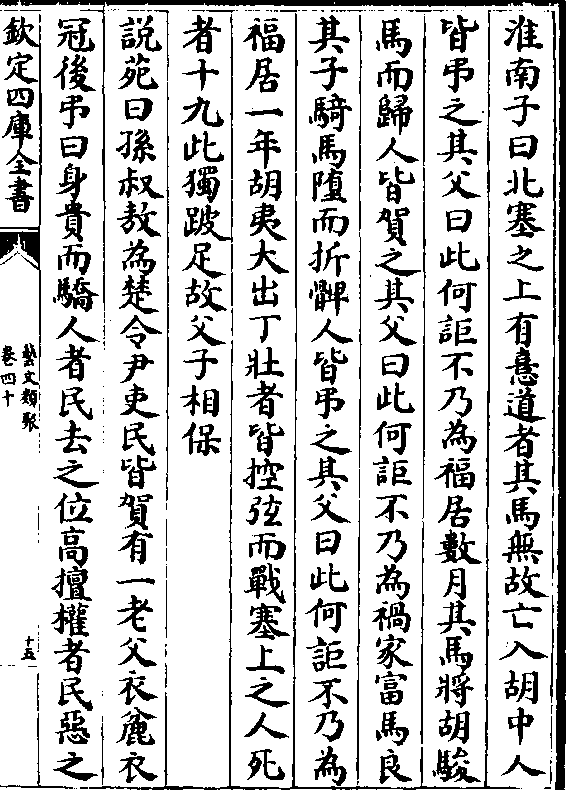 淮南子曰北塞之上有憙道者其馬無故亡入胡中人
皆弔之其父曰此何詎不乃為福居數月其馬將胡駿
馬而歸人皆賀之其父曰此何詎不乃為禍家富馬良
其子騎馬墮而折髀人皆弔之其父曰此何詎不乃為
福居一年胡夷大出丁壯者皆控弦而戰塞上之人死
者十九此獨跛足故父子相保
說苑曰孫叔敖為楚令尹吏民皆賀有一老父衣麄衣
冠後弔曰身貴而驕人者民去之位高擅權者民惡之
欽定四庫全書
藝文類聚
卷四十
十五